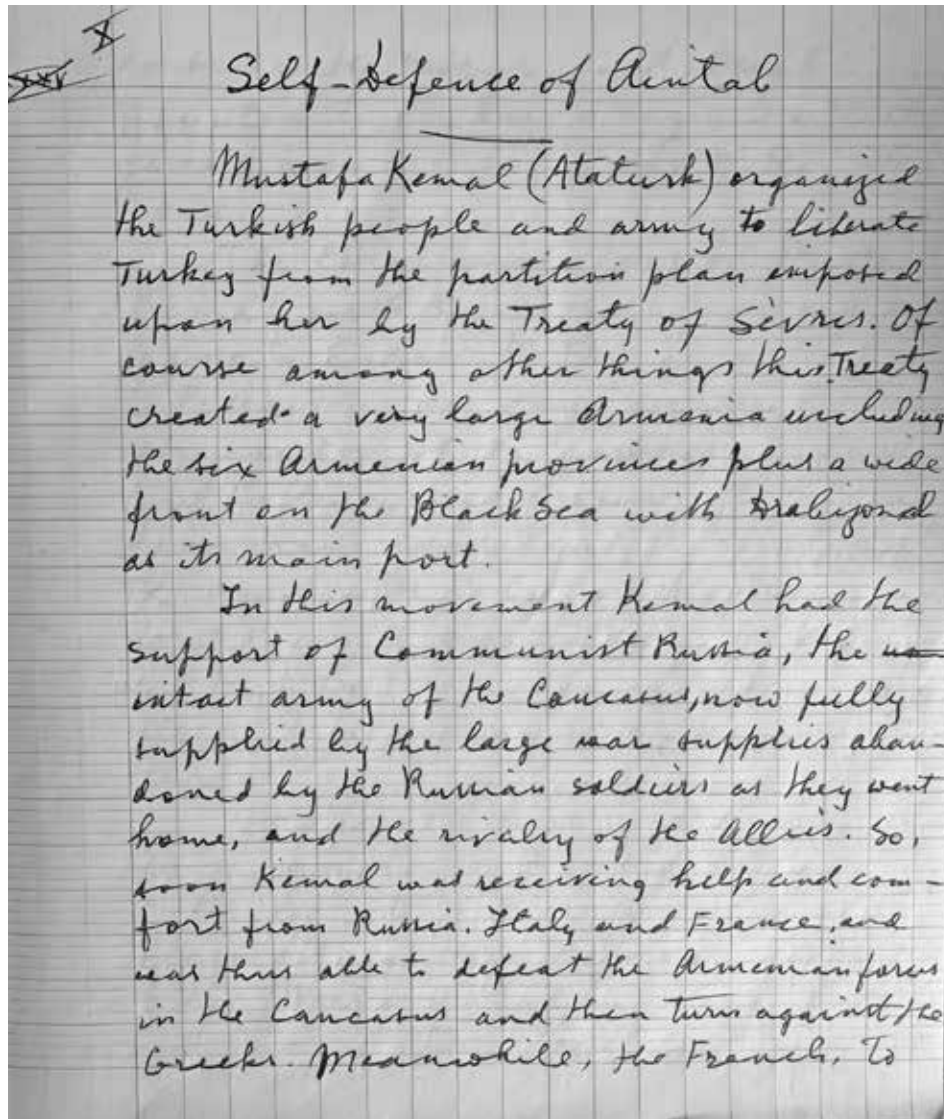 X
Self-Defence of Aintab
Mustafa Kemal (Ataturk) organized
the Turkish people and army to liberate
Turkey from the partition plan imposed
upon her by the Treaty of Sèvres. Of
course among other things this Treaty
created a very large Armenia including
the six Armenian provinces plus a wide
front on the Black Sea with Trabizond
as its main port.
In this movement Kemal had the
support of Communist Russia, the
intact army of the Caucasus, now fully
supplied by the large war supplies aban-
doned by the Russian soldiers as they went
home, and the rivalry of the Allies. So,
soon Kemal was receiving help and com-
fort from Russia. Italy and France, and
was thus able to defeat the Armenian forces
in the Caucasus and then turn against the
Greeks. Meanwhile, the French, to